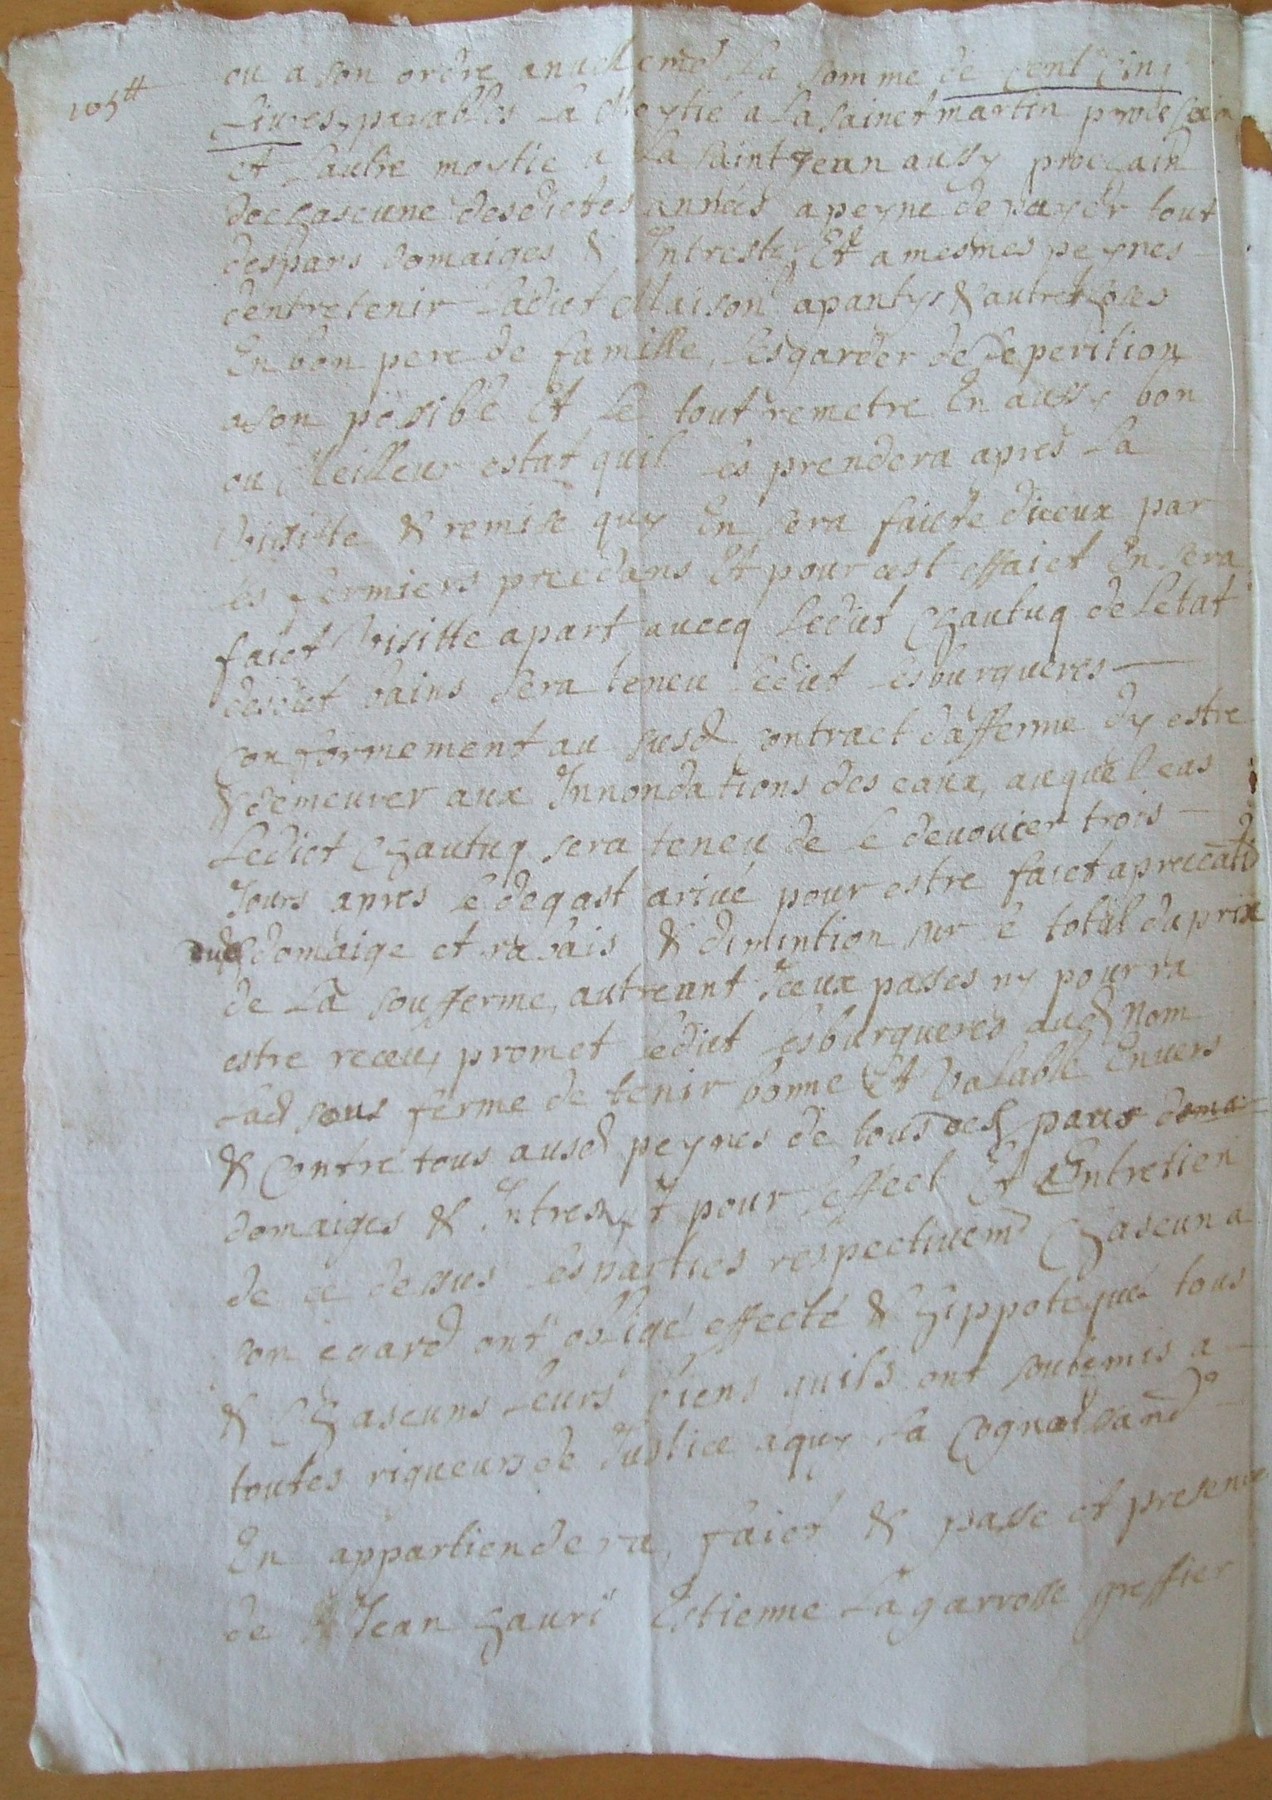 105tt
ou a son ordre anuellemt la somme de cent cinq
Livres, payables la Moytié a la sainct martin
et Lautre moytie a La saint Jean aussy prochain
de chascune desdictes années a peyne de payer tout
despans domaiges & Intrestz, Et a mesmes peynes
dentretenir Ladict Maison apantys & autres
En bon pere de famille, Les garder de deperition
a son posible Et Le tout remetre En aussy bon
ou Meilleur estat quil Les prendera apres La
Visitte & remise quy En sera faicte diceux par
Les fermiers precedans Et pour cest effaict En sera
faict Visitte apart avecq Ledict Chautuq de Letat
desdict bains sera teneu Ledict Lesburgueres
Conformement au susd contract dafferme dy estre
& demeurer aux Innondations des eaux, auquel cas
Ledict Chautuq sera teneu de le denoncer trois
Jours apres Le degast arivé pour estre faict
dud domaige et rabais & dimintion sur le total du prix
de La soufferme, autremt Iceux passes ny pourra
estre receu, promet Ledict Lesburgueres aud Nom
Lad sous ferme de tenir bonne Et Valable Envers
& Contre tous ausd peynes de tous des pans doma
domaiges & Intrest, Et pour Leffect Et Entretien
de ce dessus Les parties respectivemt Chascun a
son egard ont obligé effecté & hippotequé tous
& Chascuns Leurs biens quils ont soubmis a
toutes rigueurs de Justice a quy La
En appartiendera, faict & passe et presence
de Jean Estienne Lagarrosse greffier